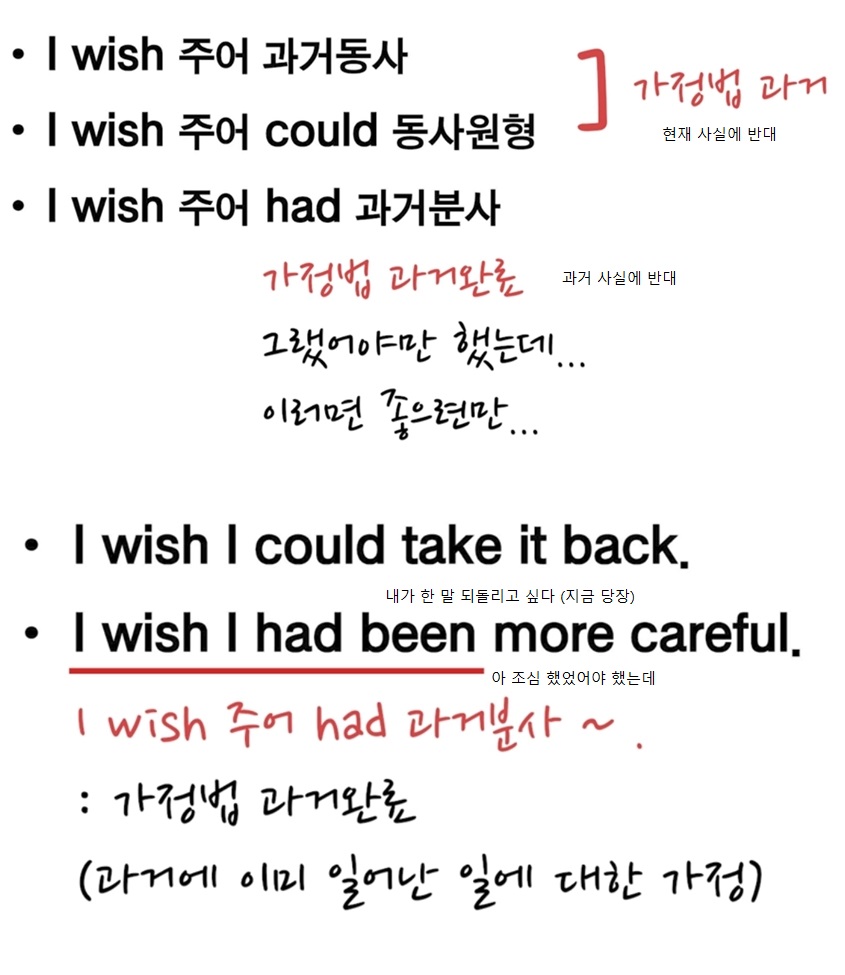 • I wish 주어 과거동사
• I wish 주어 could 동사원형
가정법 과거
현재 사실에 반대
• I wish 주어 had 과거분사
가정법 과거완료
과거 사실에 반대
그랬어야만 했는데...
이러면 좋으련만...
• I wish I could take it back.
내가 한 말 되돌리고 싶다 (지금 당장)
• I wish I had been more careful.
아 조심 했었어야 했는데
I wish 주어 had 과거분사 ~ .
: 가정법 과거완료
(과거에 이미 일어난 일에 대한 가정)